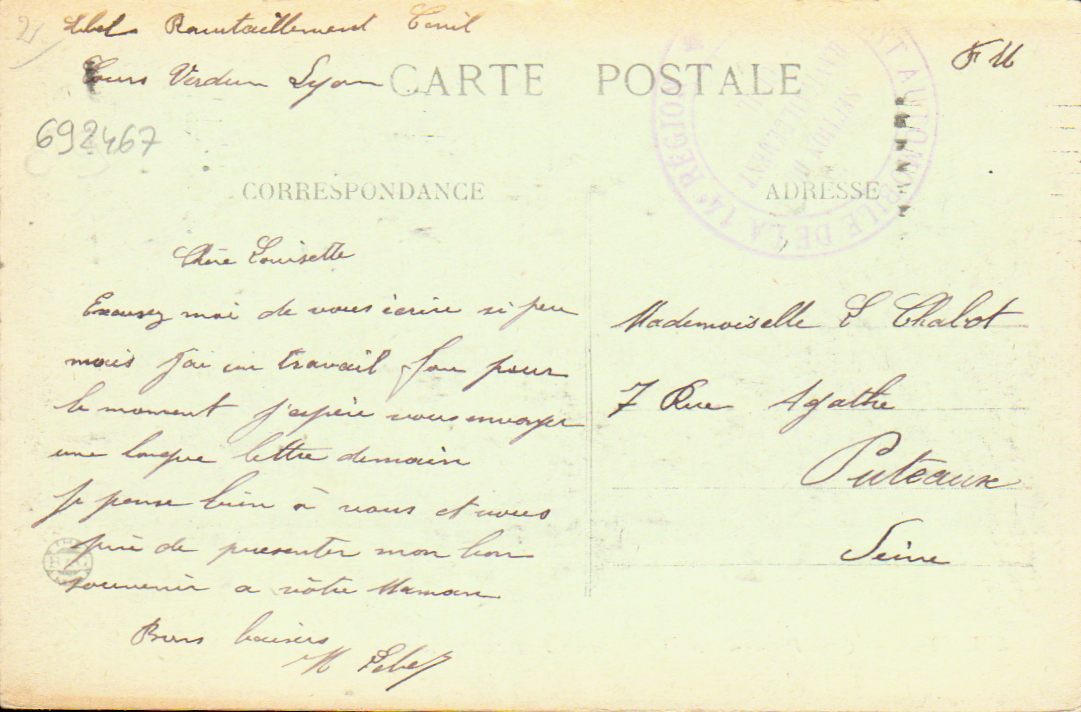 Lebel Ravitaillement Civil
Cours Verdun Lyon
F M
CARTE POSTALE
692467
AUTOMOBILE DE LA 14e REGION
CORRESPONDANCE
ADRESSE
Chère Louisette
Excusez moi de vous écrire si peu
mais j'ai un travail fou pour
le moment j'espère vous envoyer
une longue lettre demain
Je pense bien à vous et vous
prie de presenter mon bon
souvenir a vôtre Maman
Bons baisers
M Lebel
Mademoiselle L Chabot
7 Rue Agathe
Puteaux
Seine